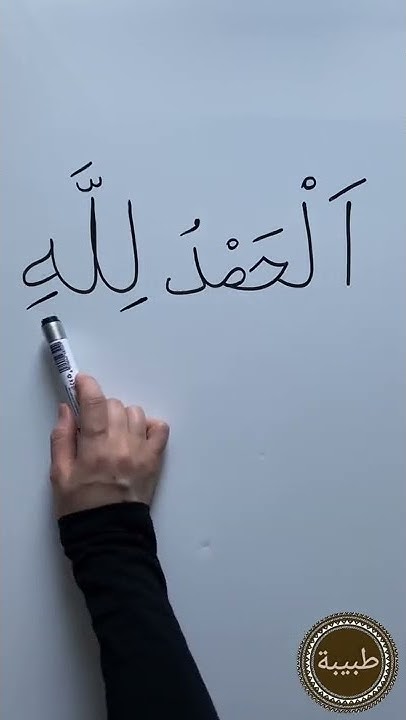 اَلْحَمْدُ لِلَّهِ
طبيبة